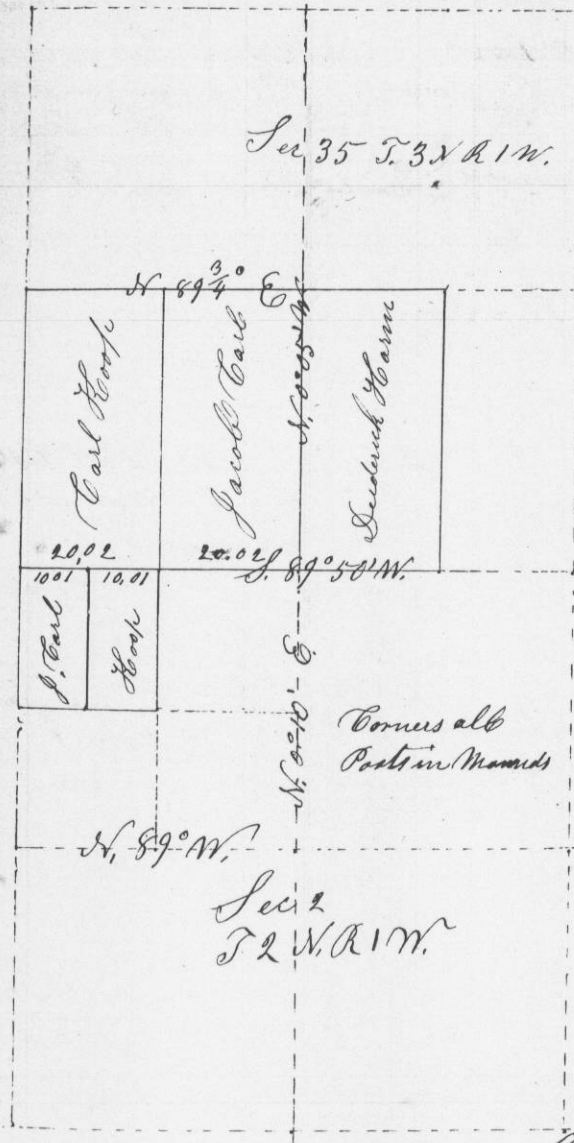 Sec 35 T. 3 N R 1 W.
N 89 3/4° E
Carl Koop
Jacob Carl
N. 0° 05' W
Diederick Harm
20,02
20.02
S. 89° 50' W.
10 01
10,01
J. Carl
Koop
N. 0° 10' - E
Corners all
Posts in Mounds
N, 89° W.
Sec 2
T 2 N. R 1 W.